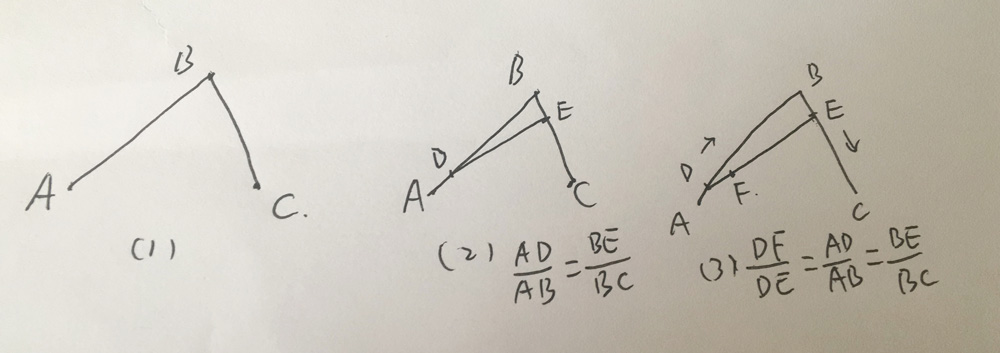 B
A
C.
(1)
B
E
D
A
C
(2) AD/AB = BE/BC
B
E
D
F.
A
C
(3) DF/DE = AD/AB = BE/BC